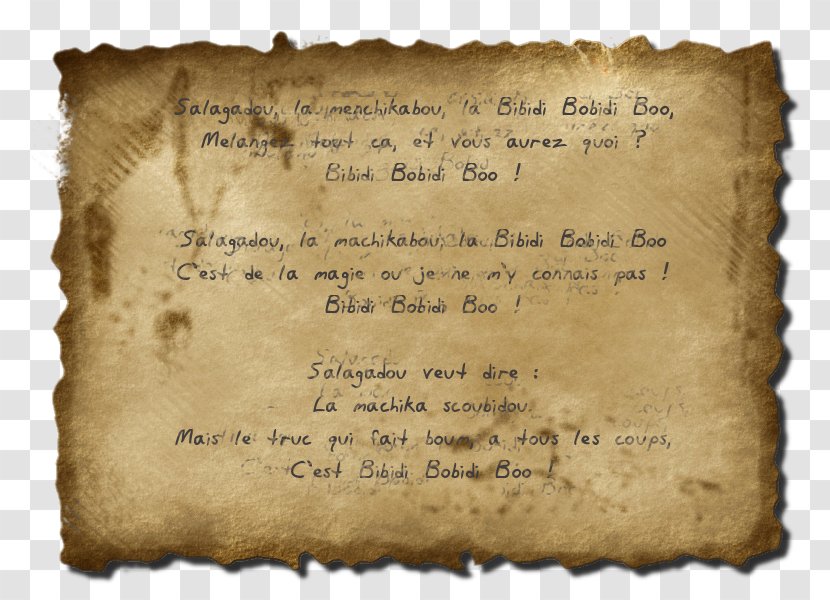 Salagadou, la menchikabou, la Bibidi Bobidi Boo,
Melangez tout ca, et vous aurez quoi ?
Bibidi Bobidi Boo !
Salagadou, la machikabou, la Bibidi Bobidi Boo
C'est de la magie ou je ne m'y connais pas !
Bibidi Bobidi Boo !
Salagadou veut dire :
La machika scoubidou.
Mais le truc qui fait boum, a tous les coups,
C'est Bibidi Bobidi Boo !